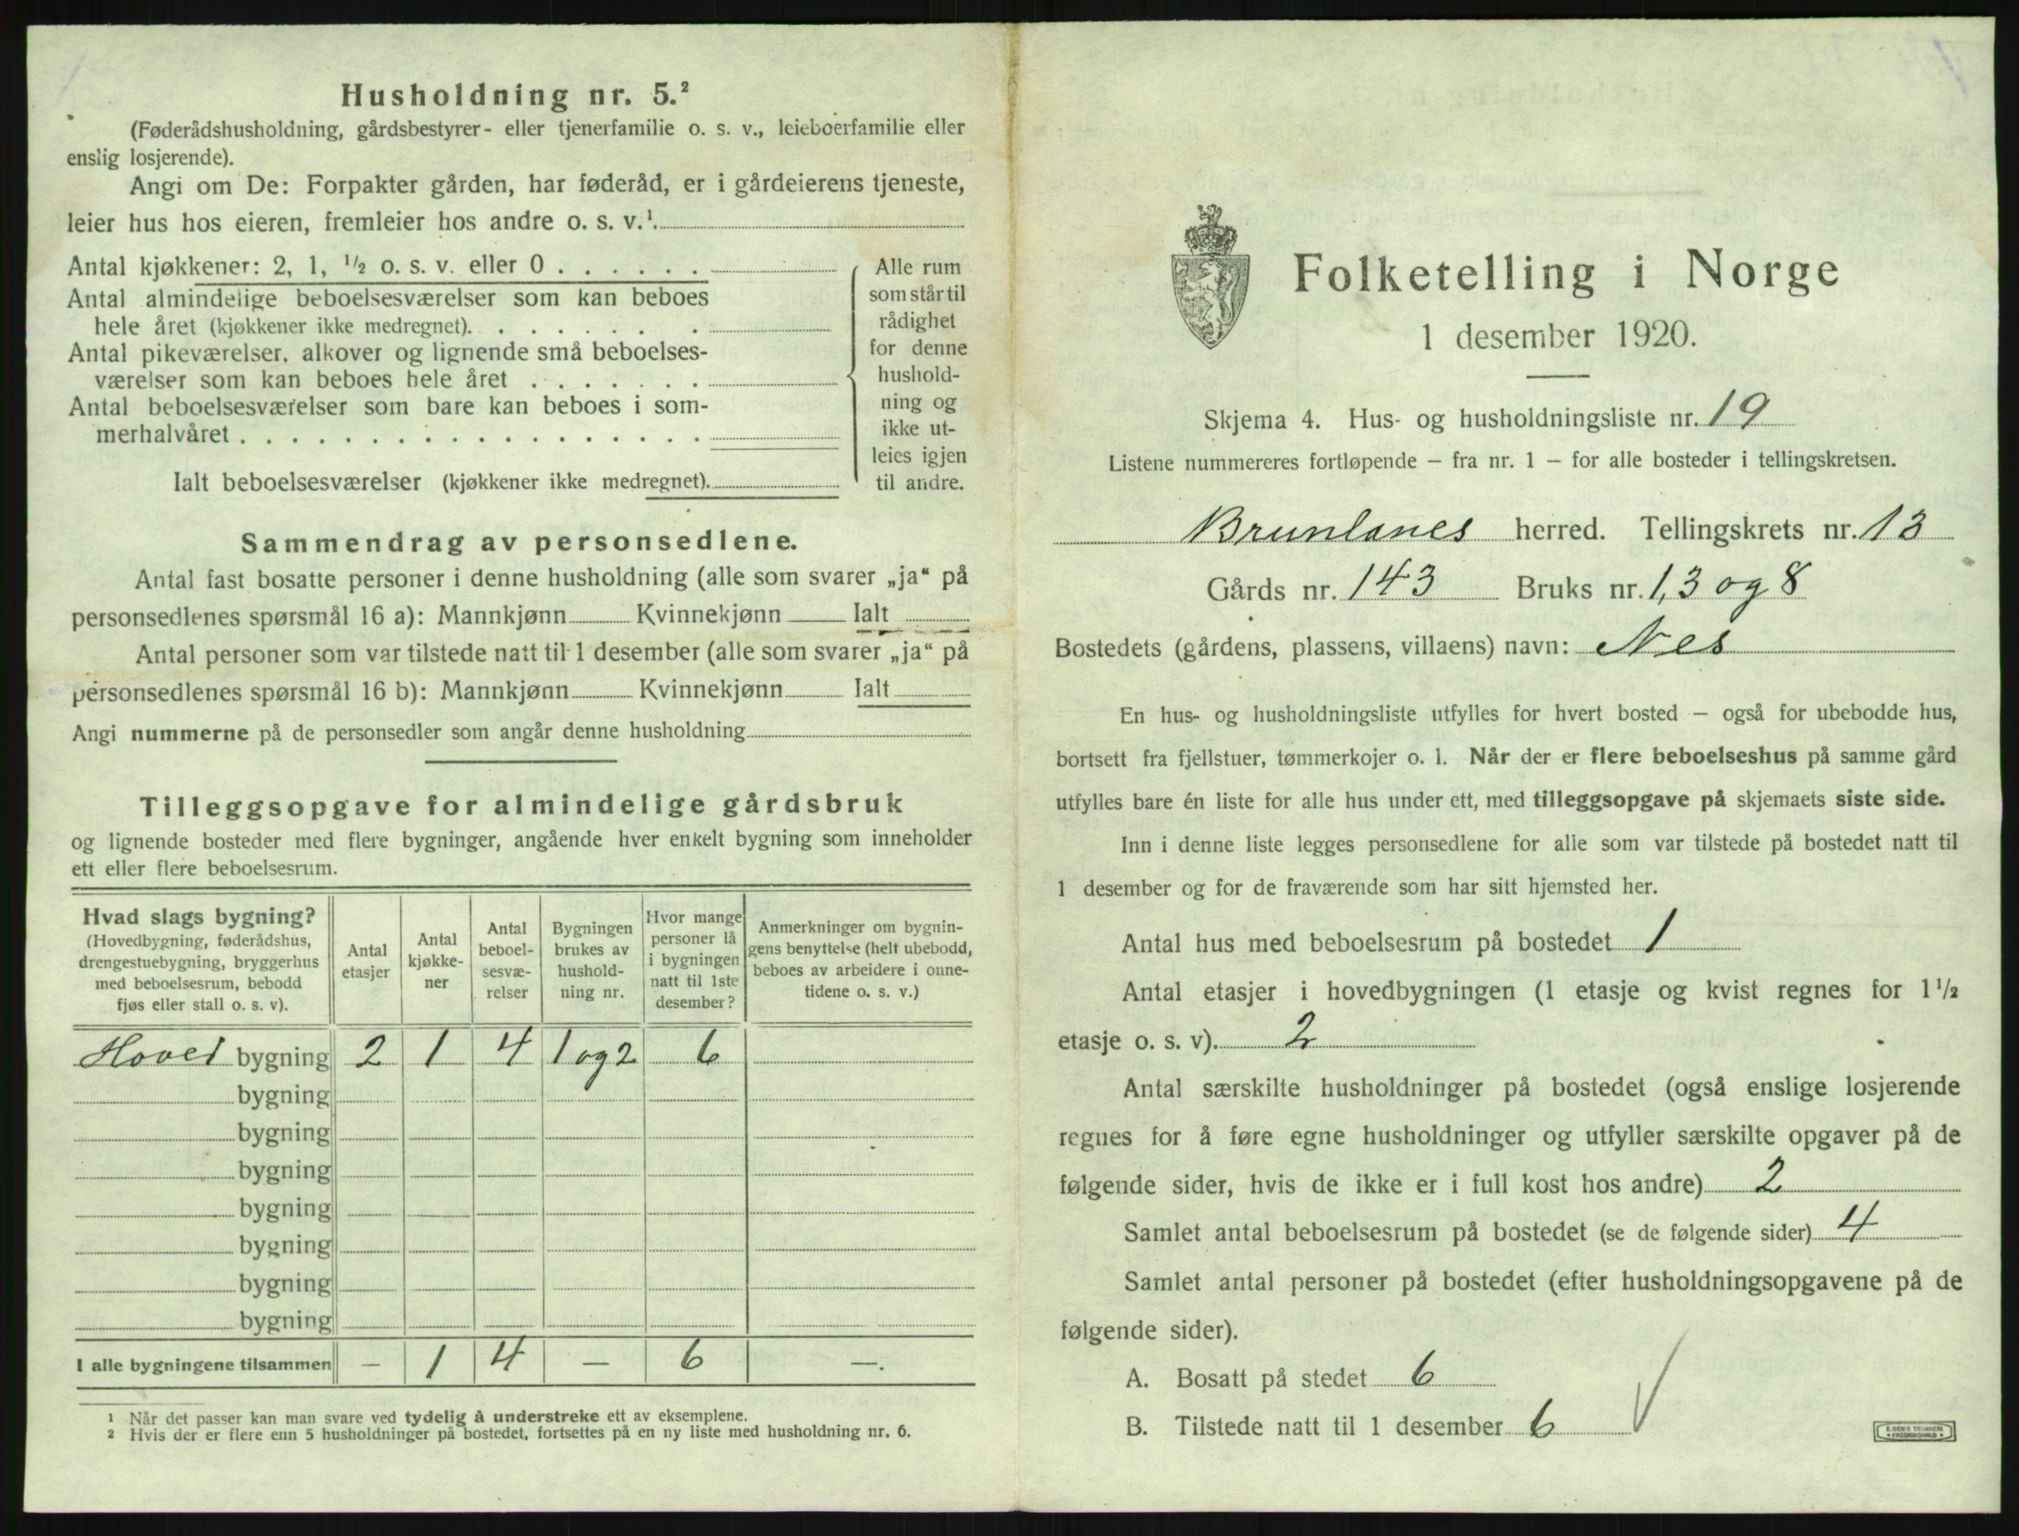 Husholdning nr. 5.²
(Føderådshusholdning, gårdsbestyrer- eller tjenerfamilie o. s. v., leieboerfamilie eller
enslig losjerende).
Angi om De: Forpakter gården, har føderåd, er i gårdeierens tjeneste,
leier hus hos eieren, fremleier hos andre o. s. v.¹.
Antal kjøkkener: 2, 1, ½ o. s. v. eller 0 . . . . . .
Antal almindelige beboelsesværelser som kan beboes
hele året (kjøkkener ikke medregnet). . . . . . . .
Antal pikeværelser, alkover og lignende små beboelses-
værelser som kan beboes hele året . . . . . . .
Antal beboelsesværelser som bare kan beboes i som-
merhalvåret . . . . . . . . . . . . . . . . . .
Ialt beboelsesværelser (kjøkkener ikke medregnet).
Alle rum
som står til
rådighet
for denne
hushold-
ning og
ikke ut-
leies igjen
til andre.
Sammendrag av personsedlene.
Antal fast bosatte personer i denne husholdning (alle som svarer „ja“ på
personsedlenes spørsmål 16 a): Mannkjønn Kvinnekjønn Ialt
Antal personer som var tilstede natt til 1 desember (alle som svarer „ja“ på
personsedlenes spørsmål 16 b): Mannkjønn Kvinnekjønn Ialt
Angi nummerne på de personsedler som angår denne husholdning
Tilleggsopgave for almindelige gårdsbruk
og lignende bosteder med flere bygninger, angående hver enkelt bygning som inneholder
ett eller flere beboelsesrum.
Hvad slags bygning?
(Hovedbygning, føderådshus,
drengestuebygning, bryggerhus
med beboelsesrum, bebodd
fjøs eller stall o. s. v).
Antal
etasjer
Antal
kjøkke-
ner
Antal
beboel-
sesvæ-
relser
Bygningen
brukes av
hushold-
ning nr.
Hvor mange
personer lå
i bygningen
natt til 1ste
desember?
Anmerkninger om bygnin-
gens benyttelse (helt ubebodd,
beboes av arbeidere i onne-
tidene o. s. v.)
Hoved bygning 2 1 4 1 og 2 6
bygning
bygning
bygning
bygning
bygning
bygning
bygning
I alle bygningene tilsammen — 1 4 — 6 —.
1 Når det passer kan man svare ved tydelig å understreke ett av eksemplene.
2 Hvis der er flere enn 5 husholdninger på bostedet, fortsettes på en ny liste med husholdning nr. 6.
Folketelling i Norge
1 desember 1920.
Skjema 4. Hus- og husholdningsliste nr. 19
Listene nummereres fortløpende – fra nr. 1 – for alle bosteder i tellingskretsen.
Brunlanes herred. Tellingskrets nr. 13
Gårds nr. 143 Bruks nr. 1, 3 og 8
Bostedets (gårdens, plassens, villaens) navn: Nes
En hus- og husholdningsliste utfylles for hvert bosted – også for ubebodde hus,
bortsett fra fjellstuer, tømmerkojer o. l. Når der er flere beboelseshus på samme gård
utfylles bare én liste for alle hus under ett, med tilleggsopgave på skjemaets siste side.
Inn i denne liste legges personsedlene for alle som var tilstede på bostedet natt til
1 desember og for de fraværende som har sitt hjemsted her.
Antal hus med beboelsesrum på bostedet 1
Antal etasjer i hovedbygningen (1 etasje og kvist regnes for 1½
etasje o. s. v). 2
Antal særskilte husholdninger på bostedet (også enslige losjerende
regnes for å føre egne husholdninger og utfyller særskilte opgaver på de
følgende sider, hvis de ikke er i full kost hos andre) 2
Samlet antal beboelsesrum på bostedet (se de følgende sider) 4
Samlet antal personer på bostedet (efter husholdningsopgavene på de
følgende sider).
A. Bosatt på stedet 6
B. Tilstede natt til 1 desember 6